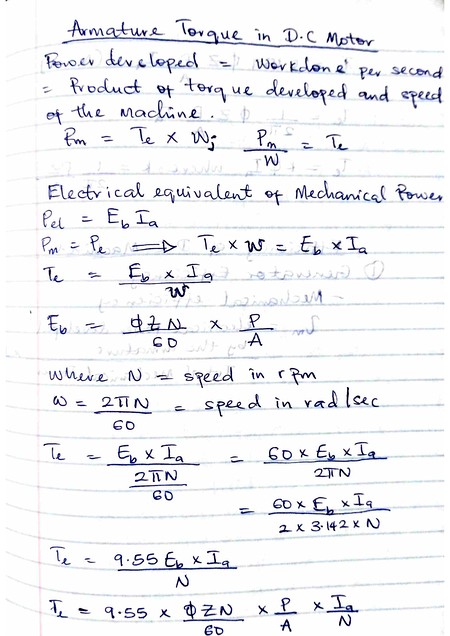 Armature Torque in D.C Motor
Power developed = Workdone per second
= Product of torque developed and speed
of the machine.
Pm = Te × W; Pm/W = Te
Electrical equivalent of Mechanical Power
Pel = Eb Ia
Pm = Pe ⟹ Te × w = Eb × Ia
Te = Eb × Ia / w
Eb = ΦZN/60 × P/A
where N = speed in rpm
ω = 2πN/60 = speed in rad/sec
Te = Eb × Ia / (2πN/60) = 60 × Eb × Ia / 2πN
= 60 × Eb × Ia / 2 × 3.142 × N
Te = 9.55 Eb × Ia / N
Te = 9.55 × ΦZN/60 × P/A × Ia/N